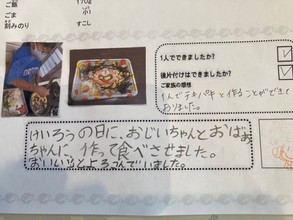 ご飯 170g
ごま
刻みのり すこし
1人でできましたか?
後片付けはできましたか?
ご家族の感想
1人でテキパキと作ることができて
おりました。
けいろうの日に、おじいちゃんとおばあ
ちゃんに、作って食べさせました。
おいしいとよろこんでいました。